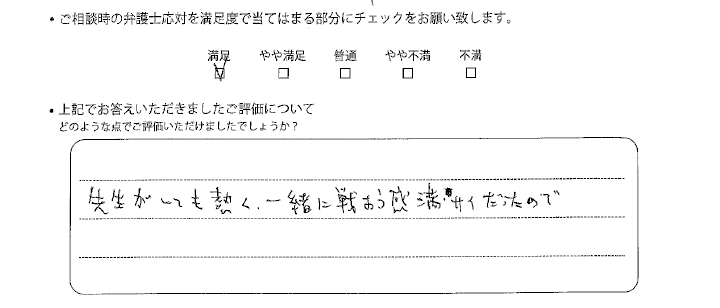 • ご相談時の弁護士応対を満足度で当てはまる部分にチェックをお願い致します。
満足 やや満足 普通 やや不満 不満
• 上記でお答えいただきましたご評価について
どのような点でご評価いただけましたでしょうか？
先生がいても熱く、一緒に戦おう感満サイだったので